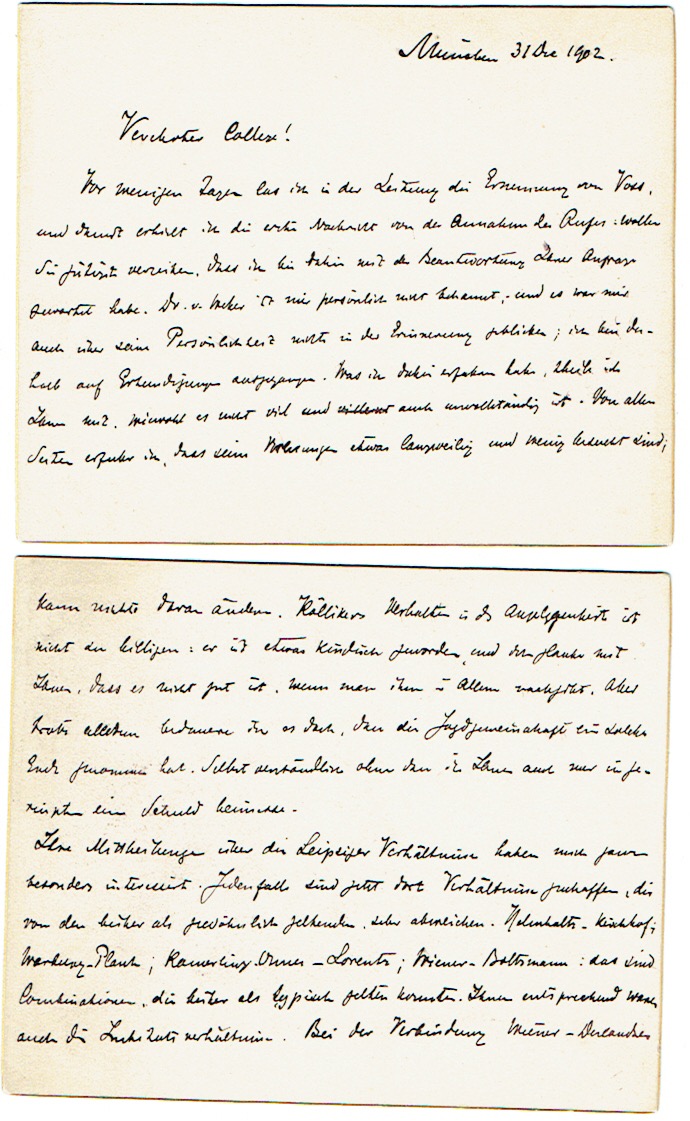 München 31 Dec 1902.
Verehrter College!
Vor wenigen Tagen las ich in der Zeitung die Ernennung von Voss,
und damit erhielt ich die erste Nachricht von der Annahme des Rufes: wollen
Sie gütigst verzeihen, dass ich bis dahin mit der Beantwortung Ihrer Anfrage
gewartet habe. Dr. v. Weber ist mir persönlich nicht bekannt, und es war mir
auch über seine Persönlichkeit nichts in der Erinnerung geblieben; ich bin des-
halb auf Erkundigungen ausgegangen. Was ich dabei erfahren habe, theile ich
Ihnen mit, wiewohl es nicht viel und auch unvollständig ist. Von allen
Seiten erfuhr ich, dass seine Vorlesungen etwas langweilig und wenig besucht sind;
kann nichts daran ändern. Köllikers Verhalten in der Angelegenheit ist
nicht zu billigen: er ist etwas kindisch geworden, und ich glaube mit
Ihnen, dass es nicht gut ist, wenn man ihm in Allem nachgibt. Aber
trotz alledem bedauere ich es doch, dass die Jagdgemeinschaft ein solches
Ende genommen hat. Selbstverständlich ohne dass ich Ihnen auch nur im ge-
ringsten eine Schuld beimesse.
Ihre Mittheilungen über die Leipziger Verhältnisse haben mich ganz
besonders interessirt. Jedenfalls sind jetzt dort Verhältnisse geschaffen, die
von den bisher als gewöhnlich geltenden, sehr abweichen. Helmholtz-Kirchhoff;
Warburg-Planck; Kamerlingh Onnes-Lorentz; Wiener-Boltzmann: das sind
Combinationen, die bisher als typisch gelten konnten. Ihnen entsprechend waren
auch die Institutsverhältnisse. Bei der Verbindung Wiener-Descoudres